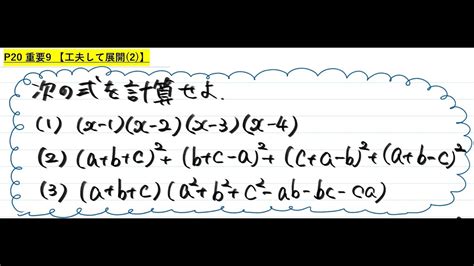 P20 重要9 【工夫して展開(2)】
次の式を計算せよ.
(1) (x-1)(x-2)(x-3)(x-4)
(2) (a+b+c)²+(b+c-a)²+(c+a-b)²+(a+b-c)²
(3) (a+b+c)(a²+b²+c²-ab-bc-ca)